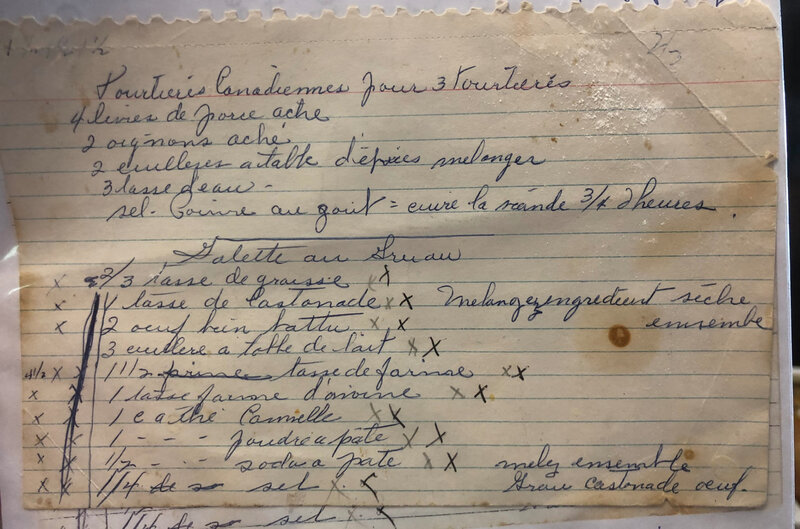 Tourtières Canadiennes pour 3 Tourtières
4 livres de porc aché
2 oignons aché
2 cuillères a table d'épices melanger
3 tasse d'eau -
sel. Poivre au gout = cuire la viande 3/4 d'heures.
Galette au Gruau
2/3 tasse de graisse x
x 1 tasse de Castonade x x Melangez engredient sèche
x 2 oeuf bien battu x x ensembe
3 cuillere a table de lait x x
4 1/2 x x 1 1/2 tasse de farine x x
x 1 tasse farine d'avoine x x
x x 1 c a thé Cannelle x x
x x 1 - - - poudre a pâte x x
x x 1/2 - - soda a pâte x x melez ensemble
x x 1/4 sel x x Gruau castonade oeuf.
1/4 sel x